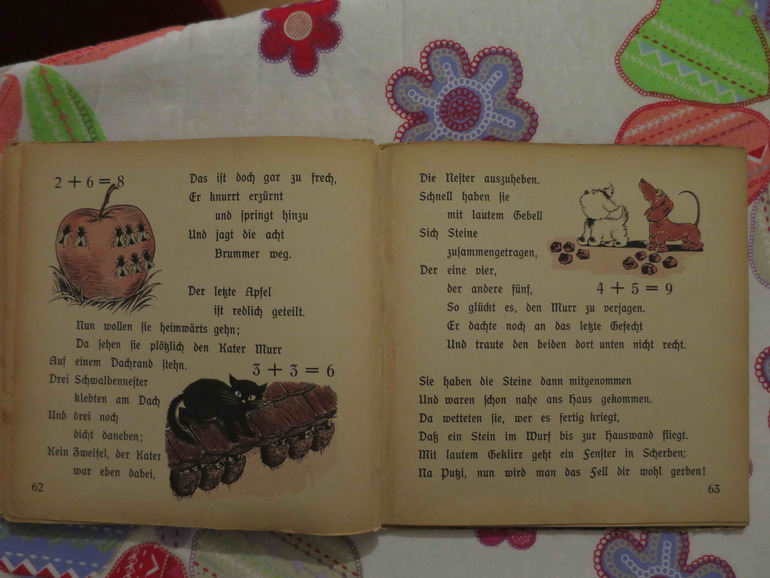 2 + 6 = 8
Das ist doch gar zu frech,
Er knurrt erzürnt
und springt hinzu
Und jagt die acht
Brummer weg.
Der letzte Apfel
ist redlich geteilt.
Nun wollen sie heimwärts gehn;
Da sehen sie plötzlich den Kater Murr
Auf einem Dachrand stehn.
3 + 3 = 6
Drei Schwalbennester
klebten am Dach
Und drei noch
dicht daneben;
Kein Zweifel, der Kater
war eben dabei,
62
Die Nester auszuheben.
Schnell haben sie
mit lautem Gebell
Sich Steine
zusammengetragen,
Der eine vier,
der andere fünf,
4 + 5 = 9
So glückt es, den Murr zu verjagen.
Er dachte noch an das letzte Gefecht
Und traute den beiden dort unten nicht recht.
Sie haben die Steine dann mitgenommen
Und waren schon nahe ans Haus gekommen.
Da wetteten sie, wer es fertig kriegt,
Daß ein Stein im Wurf bis zur Hauswand fliegt.
Mit lautem Geklirr geht ein Fenster in Scherben;
Na Putzi, nun wird man das Fell dir wohl gerben!
63